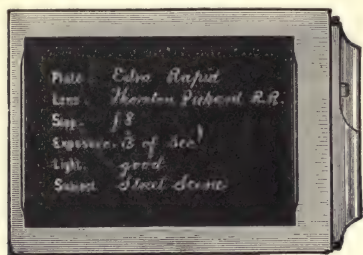 Plate. Extra Rapid
Lens. Thornton Pickard R.R.
Stop. f 8
Exposure. of Sec
Light. good
Subject Street Scene